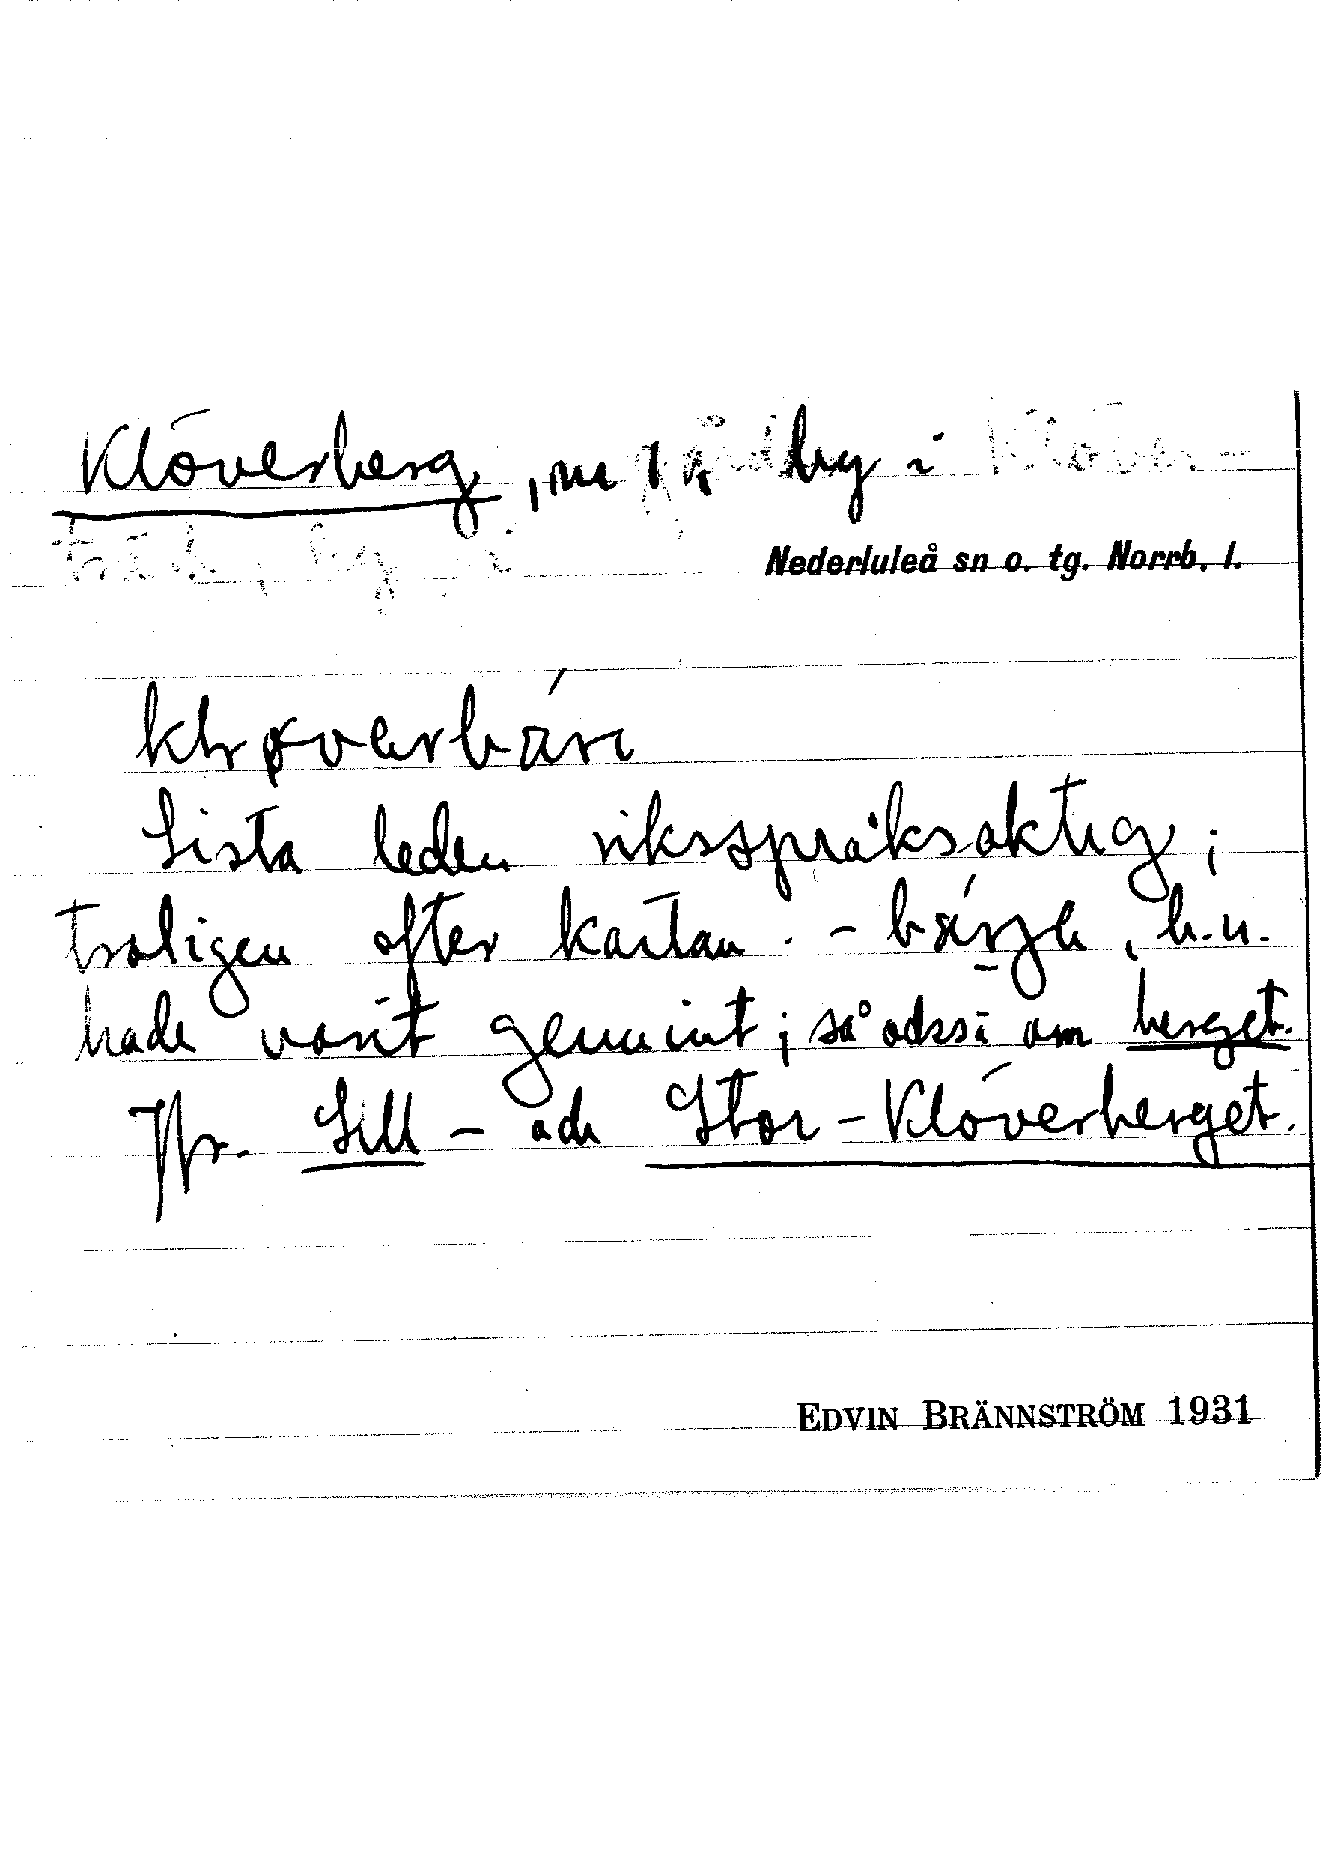 Klöverberg, by i Klöver-
träsk, by i
Nederluleå sn o. tg. Norrb. l.
Sista leden riksspråksaktig;
troligen efter kartan. - h.n.
hade varit genuint; så också om berget.
Jfr. Lill- och Stor-Klöverberget.
EDVIN BRÄNNSTRÖM 1931